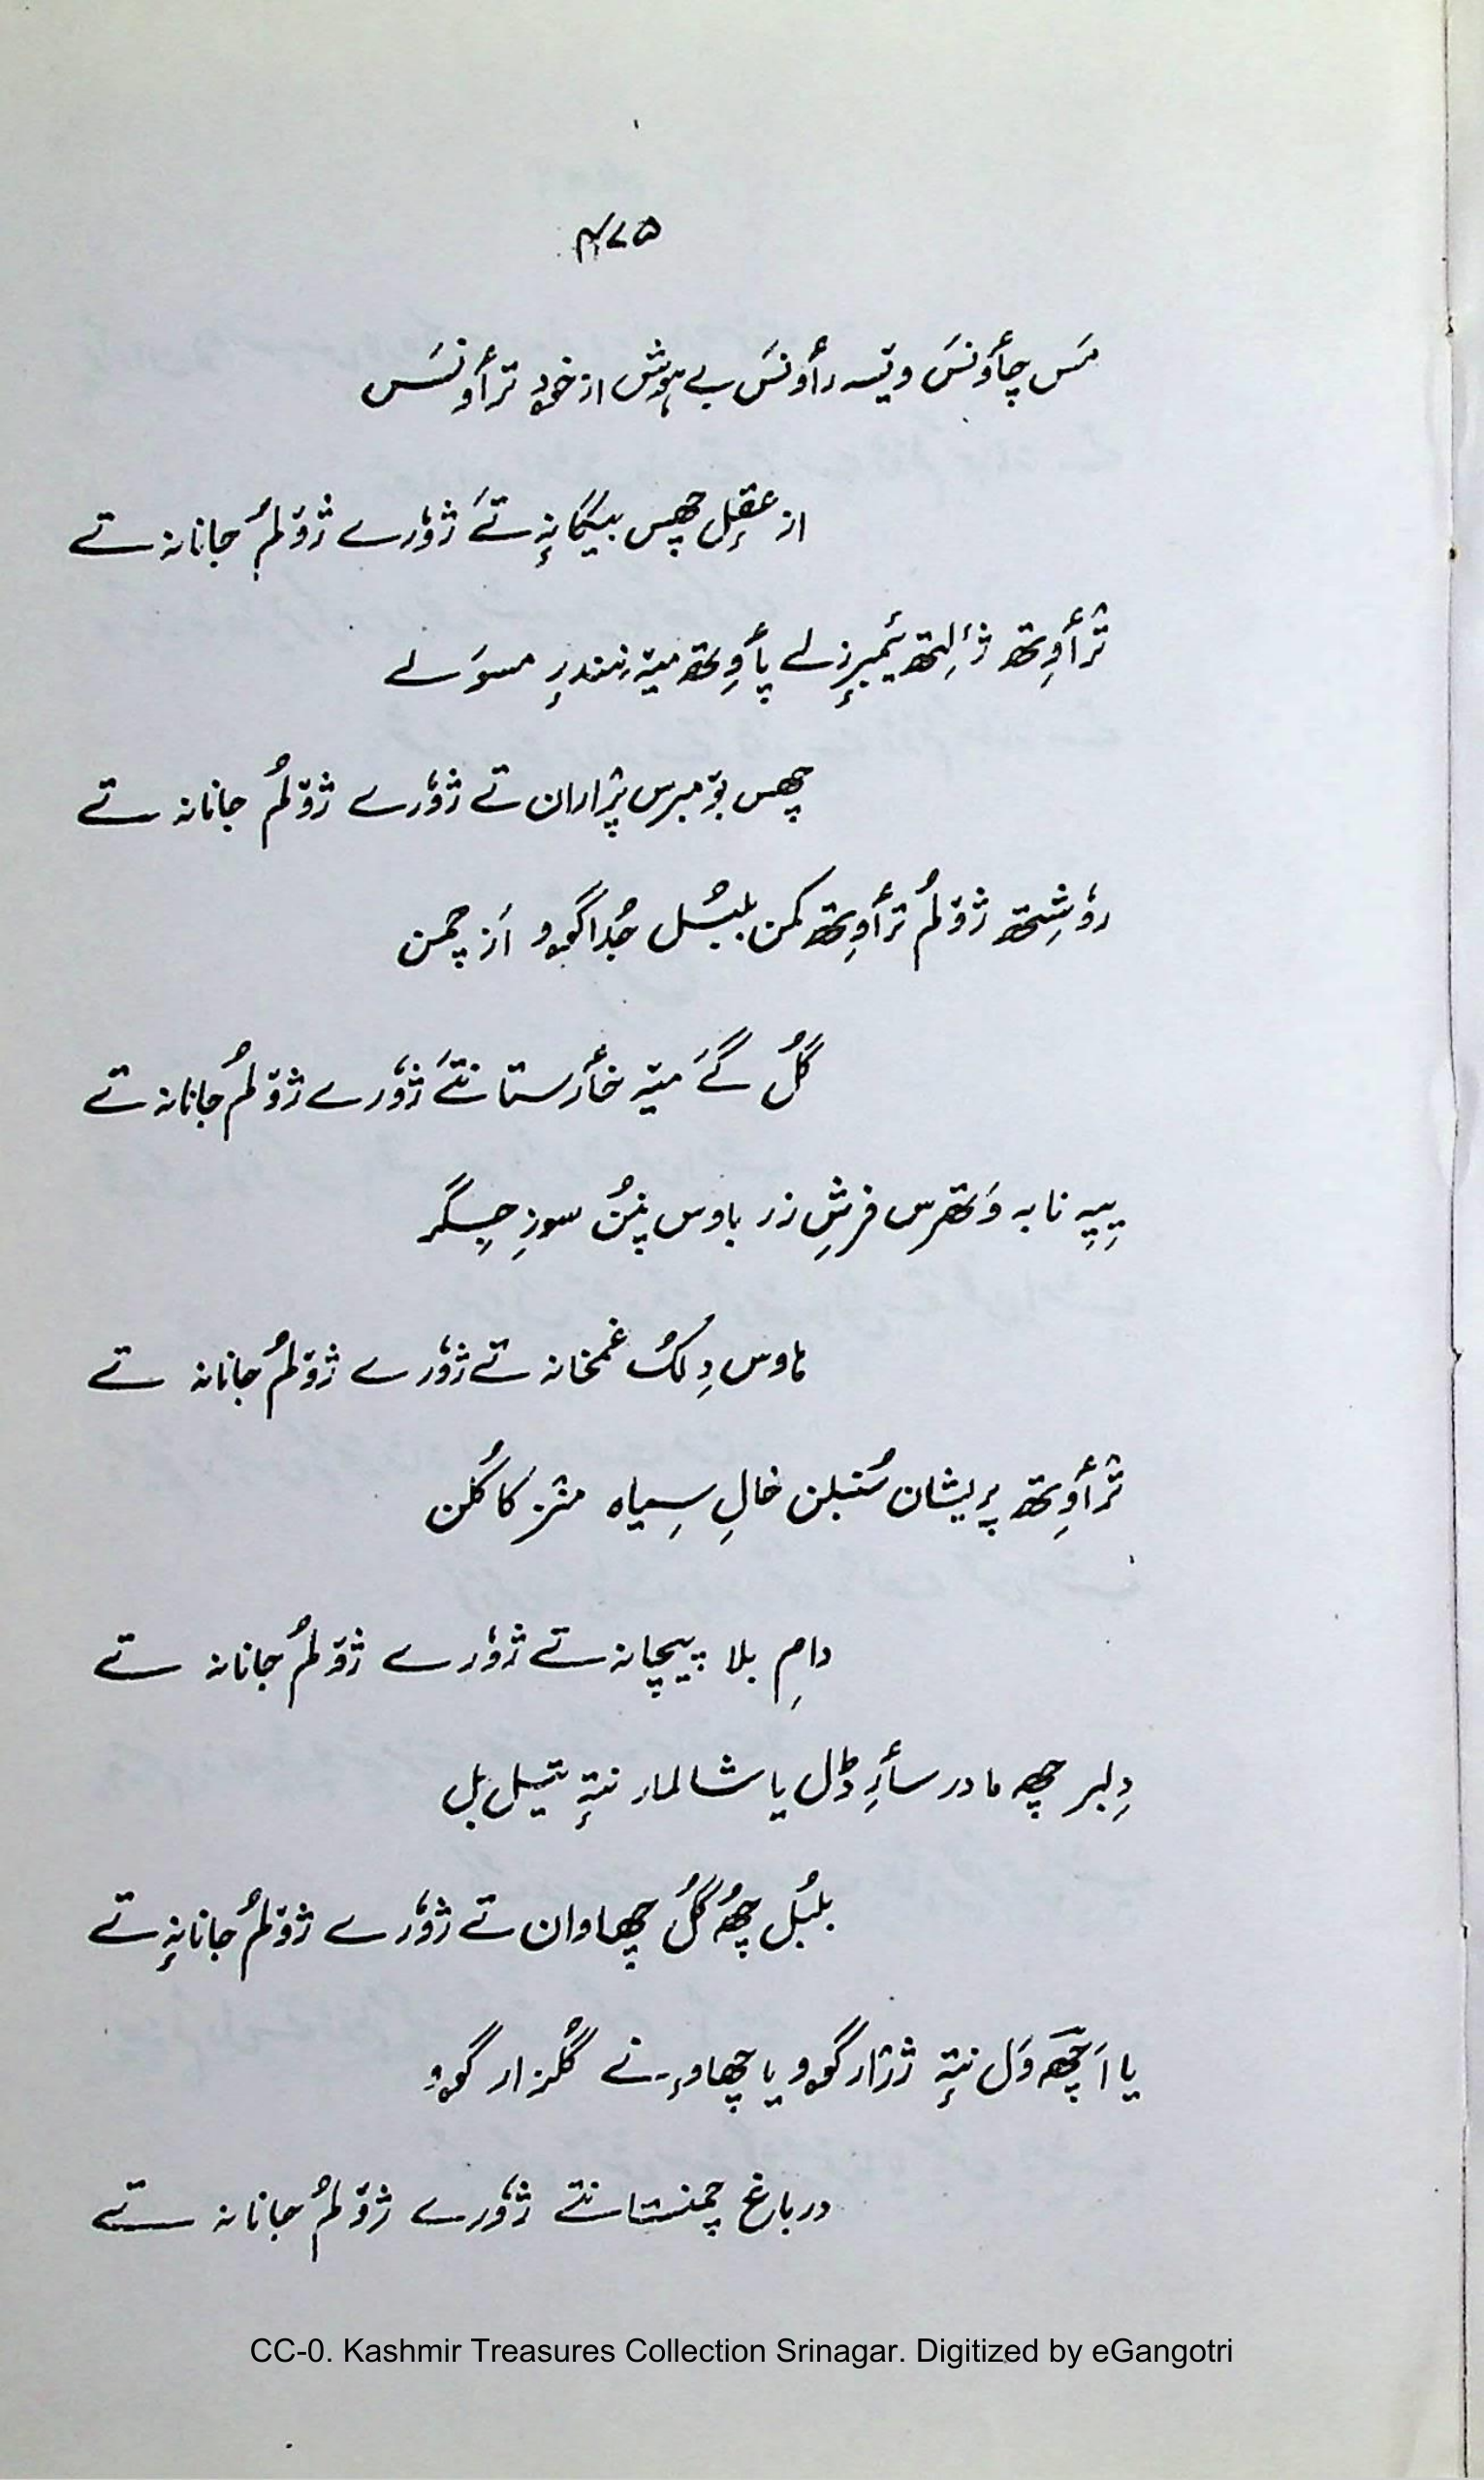 ۴۷۵
مَس چأونسَ ویتہ رأونسَ بے ہوش از خود ترأونسَس
از عقلِ چھس بیگانہٕ تےَ ژوٗرے ژوٚلُم جانانہ تے
ژٔراوِتھ ژٔلِتھ یٔمبرزلے پأوِتھ میٚتہ نندرٕ مسوَلے
چھس بوٚمبرس پرٛاران تے ژوٗرے ژوٚلُم جانانہ تے
روٗشِتھ ژوٚلُم ترأوِتھ کمن بلبُل جُدا گوو اَز چمن
گُل گےَ میٚتہ خأرستانتےَ ژوٗرے ژوٚلُم جانانہ تے
یِیہِ نا بہ وَتھرس فرشِ زر باوس پنُن سوزِ جِگر
ہاوس دِلُک غمخانہ تے ژوٗرے ژوٚلُم جانانہ تے
ترٛأوِتھ پریشان سُنبلن خالِ سِیاہ منٛز کاکُلن
دامِ بلا پیچانہ تے ژوٗرے ژوٚلُم جانانہ تے
دِلبر چھہ مادر سأرِ ڈل یا شالمار نتہٕ تیل بل
بلبُل چھُہ گُل چھاوان تے ژوٗرے ژوٚلُم جانانہٕ تے
یا اَچھَ وَل نتہٕ ژرٛار گوو یا چھاوٕنے گُلزار گوو
در باغ چمنستانتے ژوٗرے ژوٚلُم جانانہ تے
CC-0. Kashmir Treasures Collection Srinagar. Digitized by eGangotri